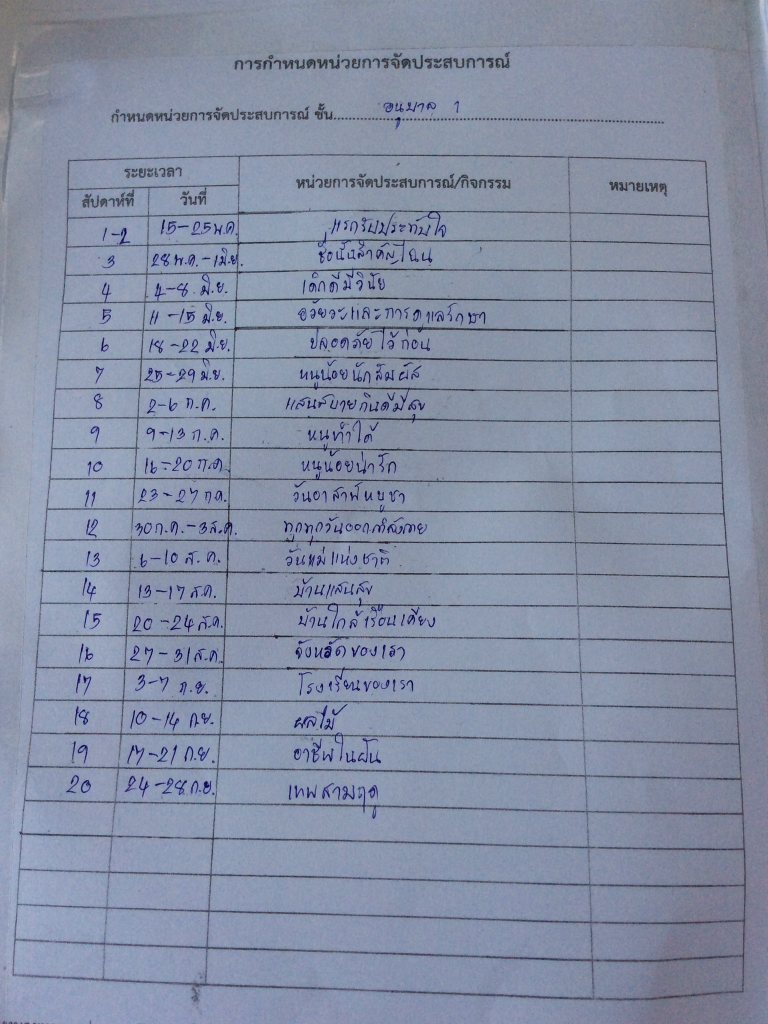 การกำหนดหน่วยการจัดประสบการณ์
กำหนดหน่วยการจัดประสบการณ์ ชั้น..........อนุบาล 1..........
ระยะเวลา หน่วยการจัดประสบการณ์/กิจกรรม หมายเหตุ
สัปดาห์ที่ วันที่
1-2 15-25 พ.ค. แรกรับประทับใจ
3 28 พ.ค.-1 มิ.ย. ชื่อนั้นสำคัญไฉน
4 4-8 มิ.ย. เด็กดีมีวินัย
5 11-15 มิ.ย. อวัยวะและการดูแลรักษา
6 18-22 มิ.ย. ปลอดภัยไว้ก่อน
7 25-29 มิ.ย. หนูน้อยนักสัมผัส
8 2-6 ก.ค. แสนสบายกินดีมีสุข
9 9-13 ก.ค. หนูทำได้
10 16-20 ก.ค. หนูน้อยน่ารัก
11 23-27 ก.ค. วันอาสาฬหบูชา
12 30 ก.ค.-3 ส.ค. ทุกทุกวันออกกำลังกาย
13 6-10 ส.ค. วันแม่แห่งชาติ
14 13-17 ส.ค. บ้านแสนสุข
15 20-24 ส.ค. บ้านใกล้เรือนเคียง
16 27-31 ส.ค. จังหวัดของเรา
17 3-7 ก.ย. โรงเรียนของเรา
18 10-14 ก.ย. ผลไม้
19 17-21 ก.ย. อาชีพในฝัน
20 24-28 ก.ย. เทพสามฤดู